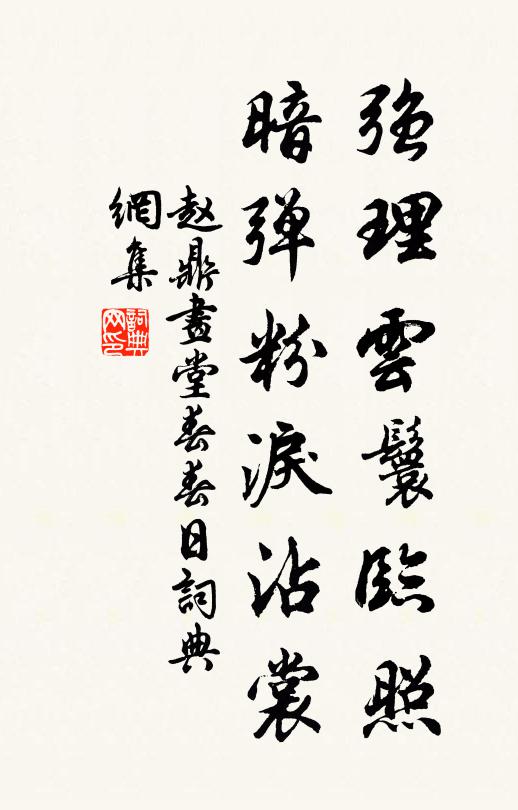 强理雲鬟臨照
暗弹粉淚沾裳
赵鼎畫堂春春日詞典
網集
詞典
网印